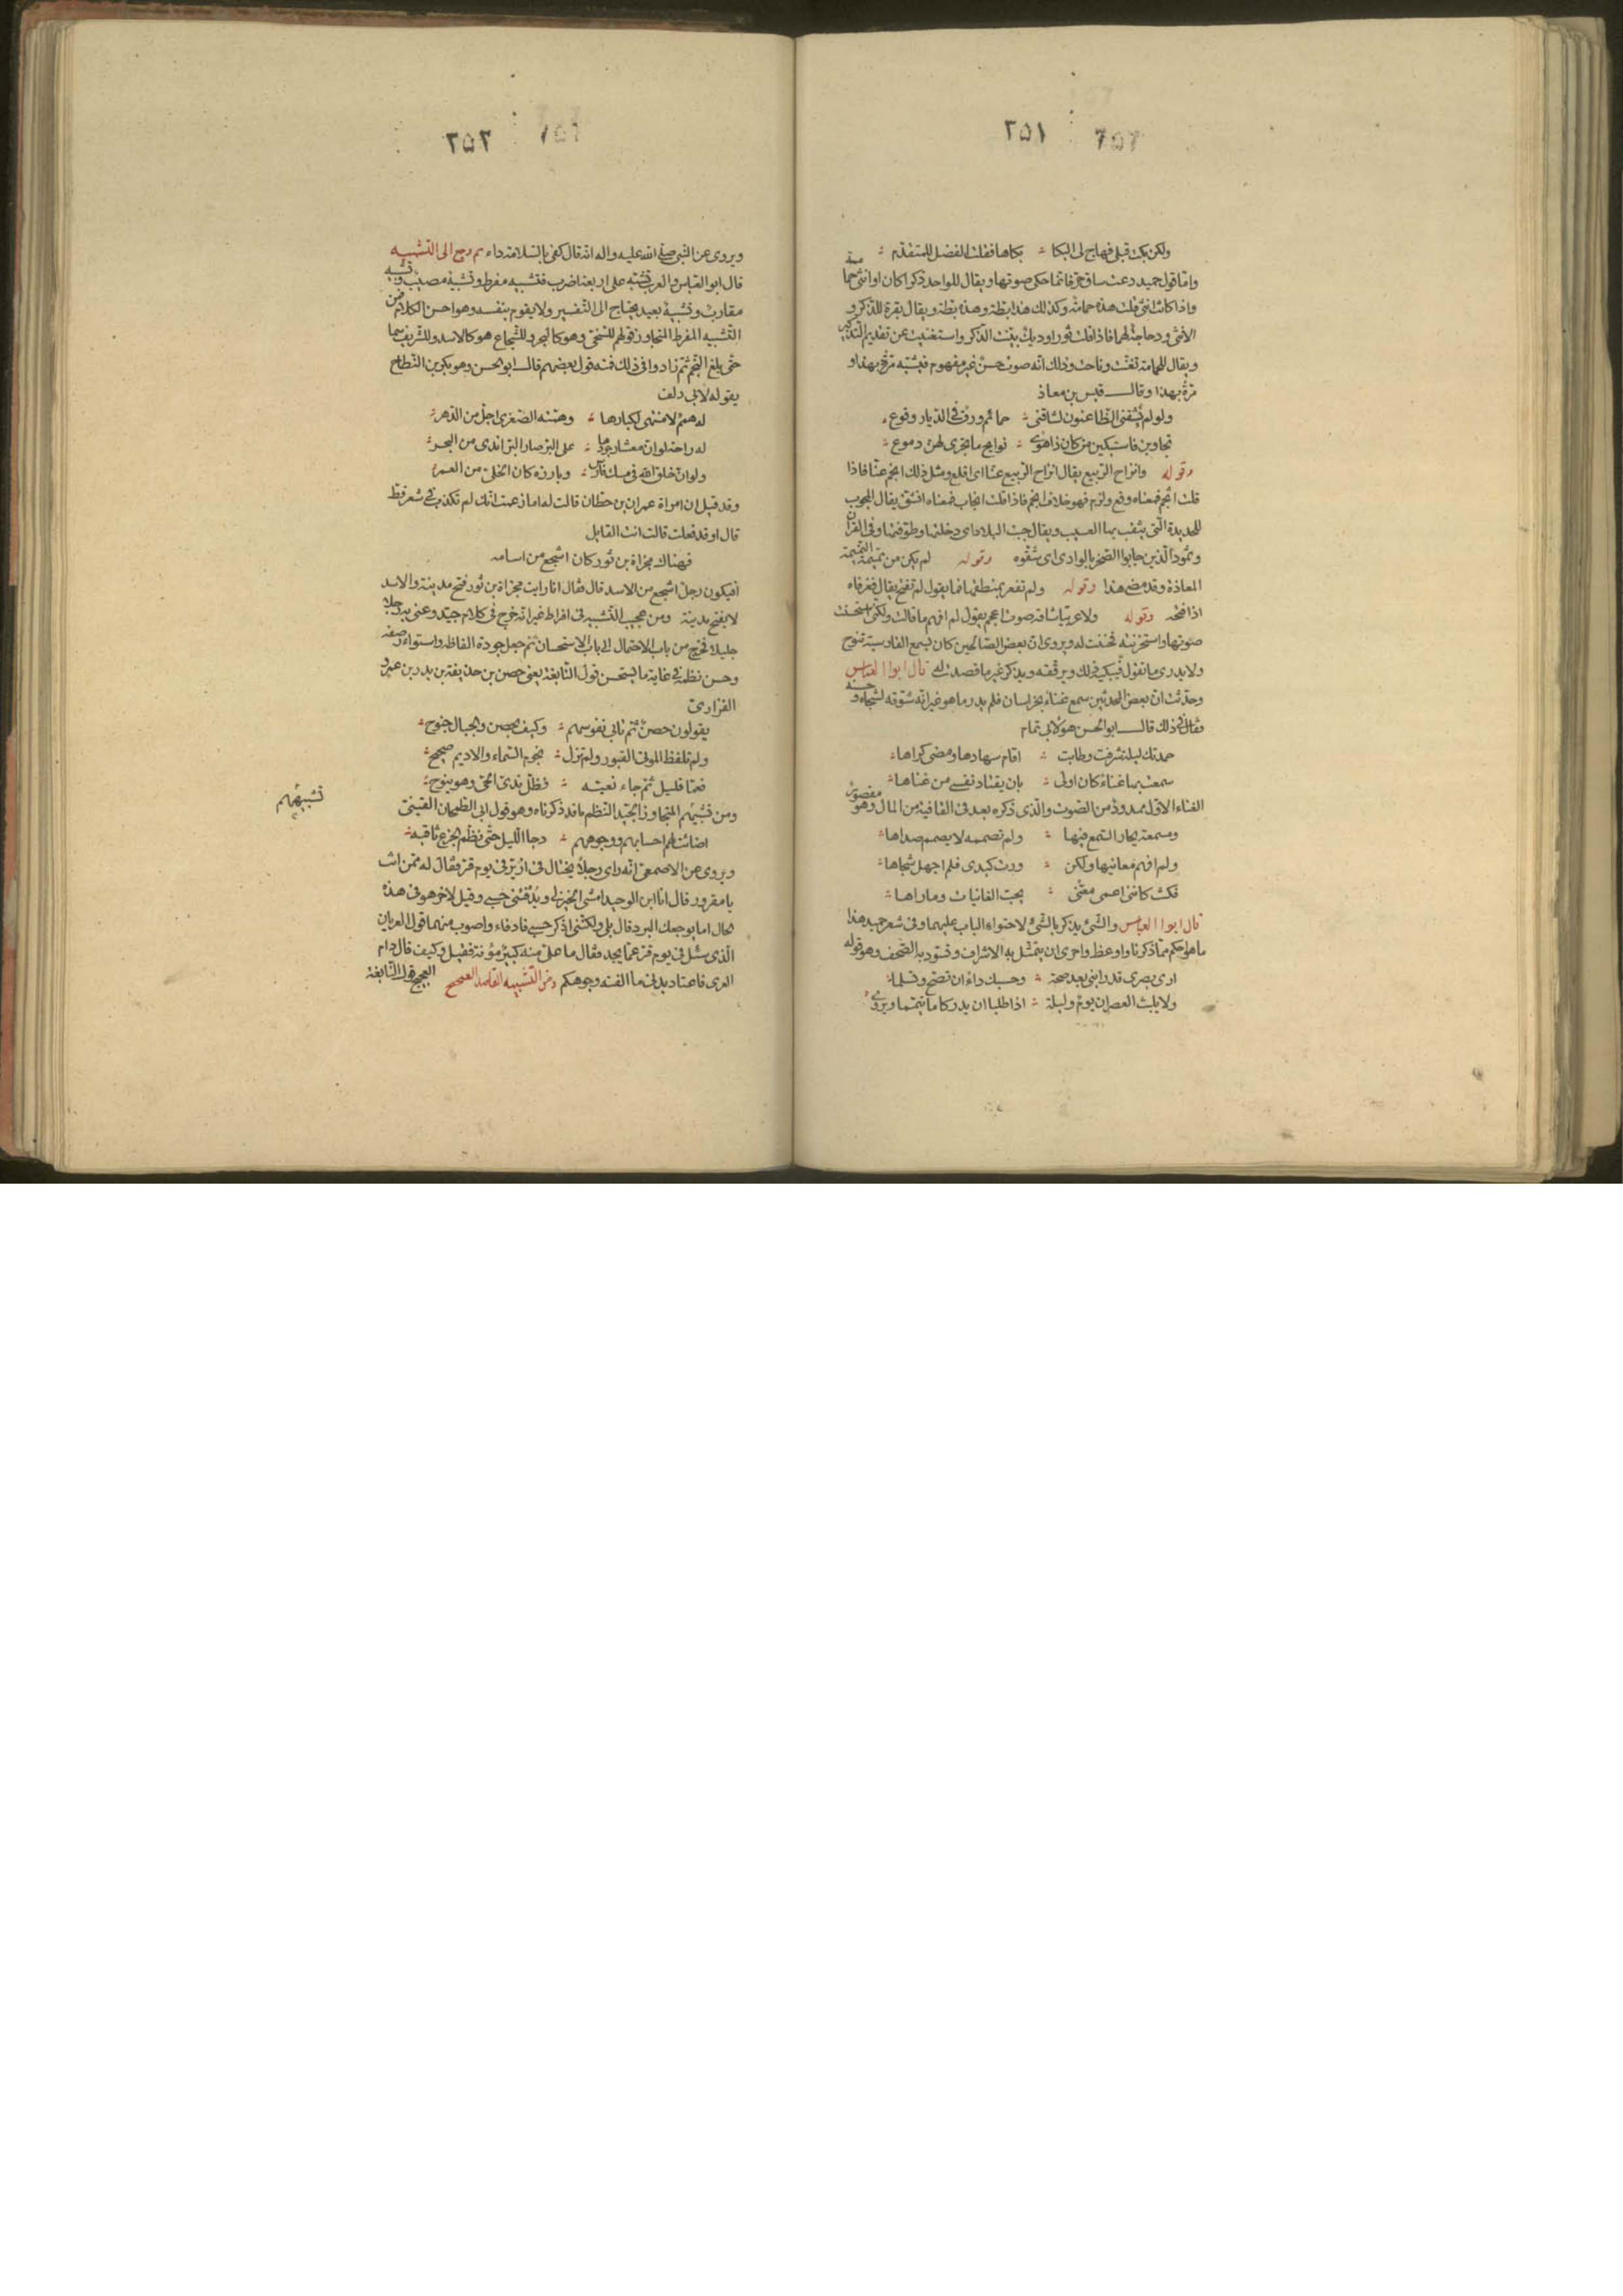 ٢٥١
ولكن بكت قبلي فهاج لي البكا بكاها فقلت الفضل للمتقدم
واما قول حميد دعت ساق حر فانما حكى صوتها ويقال للواحد ذكرا كان او انثى حمامة
واذا كانت انثى قلت هذه حمامة وكذلك هذا بطة وهذه بطة ويقال بقرة للذكر و
الانثى ودجاجة لهما فاذا قلت ثور او ديك بينت الذكر واستغنيت عن تقديم التذكير
ويقال للحمامة تغنت وناحت وذلك انه صوت حسن غير مفهوم فيشبه مرة بهذا و
مرة بهذا وقال قيس بن معاذ
ولو لم يشقني الظاعنون لشاقني حمائم ورق في الديار وقوع
تجاوبن فاستبكين من كان ذا هوى نوائح ما تجري لهن دموع
وقوله وانزاح الربيع يقال انزاح الربيع عنا اى اقلع ومثل ذلك انجم عنا فاذا
قلت اثجم فمعناه وقع ولزم فهو خلاف انجم فاذا قلت انجاب فمعناه انشق يقال المجوب
للحديدة التي يثقب بها العسيب ويقال جبت البلاد اى دخلتها وطوفتها وفى القرآن
وثمود الذين جابوا الصخر بالوادى اى شقوه وقوله لم يكن من تميمة التميمة
المعاذة وقد مضى هذا وقوله ولم تفغر بمنطقها فما يقول لم تفتح يقال فغر فاه
اذا فتحه وقوله ولا عربيا شاقه صوت اعجم يقول لم افهم ما قالت ولكني استحسنت
صوتها واستحزنته فحننت له ويروى ان بعض الصالحين كان يسمع الفارسية تنوح
ولا يدرى ما تقول فيبكيه ذلك ويرققه ويذكر غير ما قصدت له قال ابو العباس
وحدثت ان بعض المحدثين سمع غناء بخراسان فلم يدر ما هو غير انه شوقه لشجاه وحسنه
فقال في ذلك قال ابو الحسن هو لابي تمام
حمدتك ليلة شرفت وطابت اقام سهادها ومضى كراها
سمعت بها غناء كان اولى بان يقتاد نفسي من غناها
الغناء الاول ممدود من الصوت والذى ذكره بعد فى القافية من المال وهو مقصور
ومسمعة يحار السمع فيها ولم تصممه لا يصمم صداها
ولم افهم معانيها ولكن ورت كبدى فلم اجهل شجاها
فكنت كانني اعمى معنى بحب الغانيات وما راها
قال ابو العباس والشئ يذكر بالشئ لاحتواء الباب عليهما وفى شعر حميد هذا
ما هو احكم مما ذكرنا واوعظ واحرى ان يتمثل به الاشراف وتسود به الصحف وهو قوله
ارى بصرى قد رابني بعد صحة وحسبك داء ان تصح وتسلما
ولا يلبث العصران يوم وليلة اذا طلبا ان يدركا ما تيمما ويروى
٢٥٢
ويروى عن النبي صلى الله عليه واله انه قال كفى بالسلامة داء ثم رجع الى التشبيه
قال ابو العباس والعرب تشبه على اربعة اضرب فتشبيه مفرط وتشبيه مصيب وتشبيه
مقارب وتشبيه بعيد يحتاج الى التفسير ولا يقوم بنفسه وهو احسن الكلام فمن
التشبيه المفرط المتجاوز قولهم للسخي وهو كالبحر وللشجاع هو كالاسد وللشريف سما
حتى بلغ النجم ثم زادوا فى ذلك فمنه قول بعضهم قال ابو الحسن وهو بكر بن النطاح
يقوله لابي دلف
له همم لا منتهى لكبارها وهمته الصغرى اجل من الدهر
له راحة لو ان معشار جودها على البر صار البر اندى من البحر
ولو ان خلق الله فى مسك فارس وبارزه كان الخلي من العمر
وقد قيل ان امراة عمران بن حطان قالت له اما زعمت انك لم تكذب في شعر قط
قال او قد فعلت قالت انت القايل
فهناك مجزاة بن ثور كان اشجع من اسامه
افيكون رجل اشجع من الاسد قال فقال انا رايت مجزاة بن ثور فتح مدينة والاسد
لا يفتح مدينة ومن عجيب التشبيه فى افراط غير انه خرج فى كلام جيد وعنى به رجلا
جليلا فخرج من باب الاحتمال الى باب الاستحسان ثم جعل جودة الفاظه واستواء وصفه
وحسن نظمه في غاية ما يستحسن قول النابغة يعني حصن بن حذيفة بن بدر بن عمرو
الفزارى
يقولون حصن ثم تابى نفوسهم وكيف بحصن والجبال جنوح
ولم تلفظ الموتى القبور ولم تزل نجوم السماء والاديم صحيح
فعما قليل ثم جاء نعيه فظل ندى الحي وهو ينوح
ومن تشبيههم المتجاوز الجيد النظم ما قد ذكرناه وهو قول ابي الطمحان القيني
تشبيههم
اضاءت لهم احسابهم ووجوههم دجا الليل حتى نظم الجزع ثاقبه
ويروى عن الاصمعي انه راى رجلا يختال فى ازير فى يوم قر فقال له ممن انت
يا مقرور قال انا ابن الوحيد امشى الخيزلى ويدفئني حسبي وقيل لاخر هو فى هذه
الحال اما يوجعك البرد قال بلى ولكنني اذكر حسبي فادفاء واصوب منهما قول العريان
الذى سئل فى يوم قر عما يجد فقال ما علي منه كبير مؤنة فقيل وكيف قال دام
العرى فاعتاد بدني ما الفته وجوهكم ومن التشبيه القاصد الصحيح قول النابغة